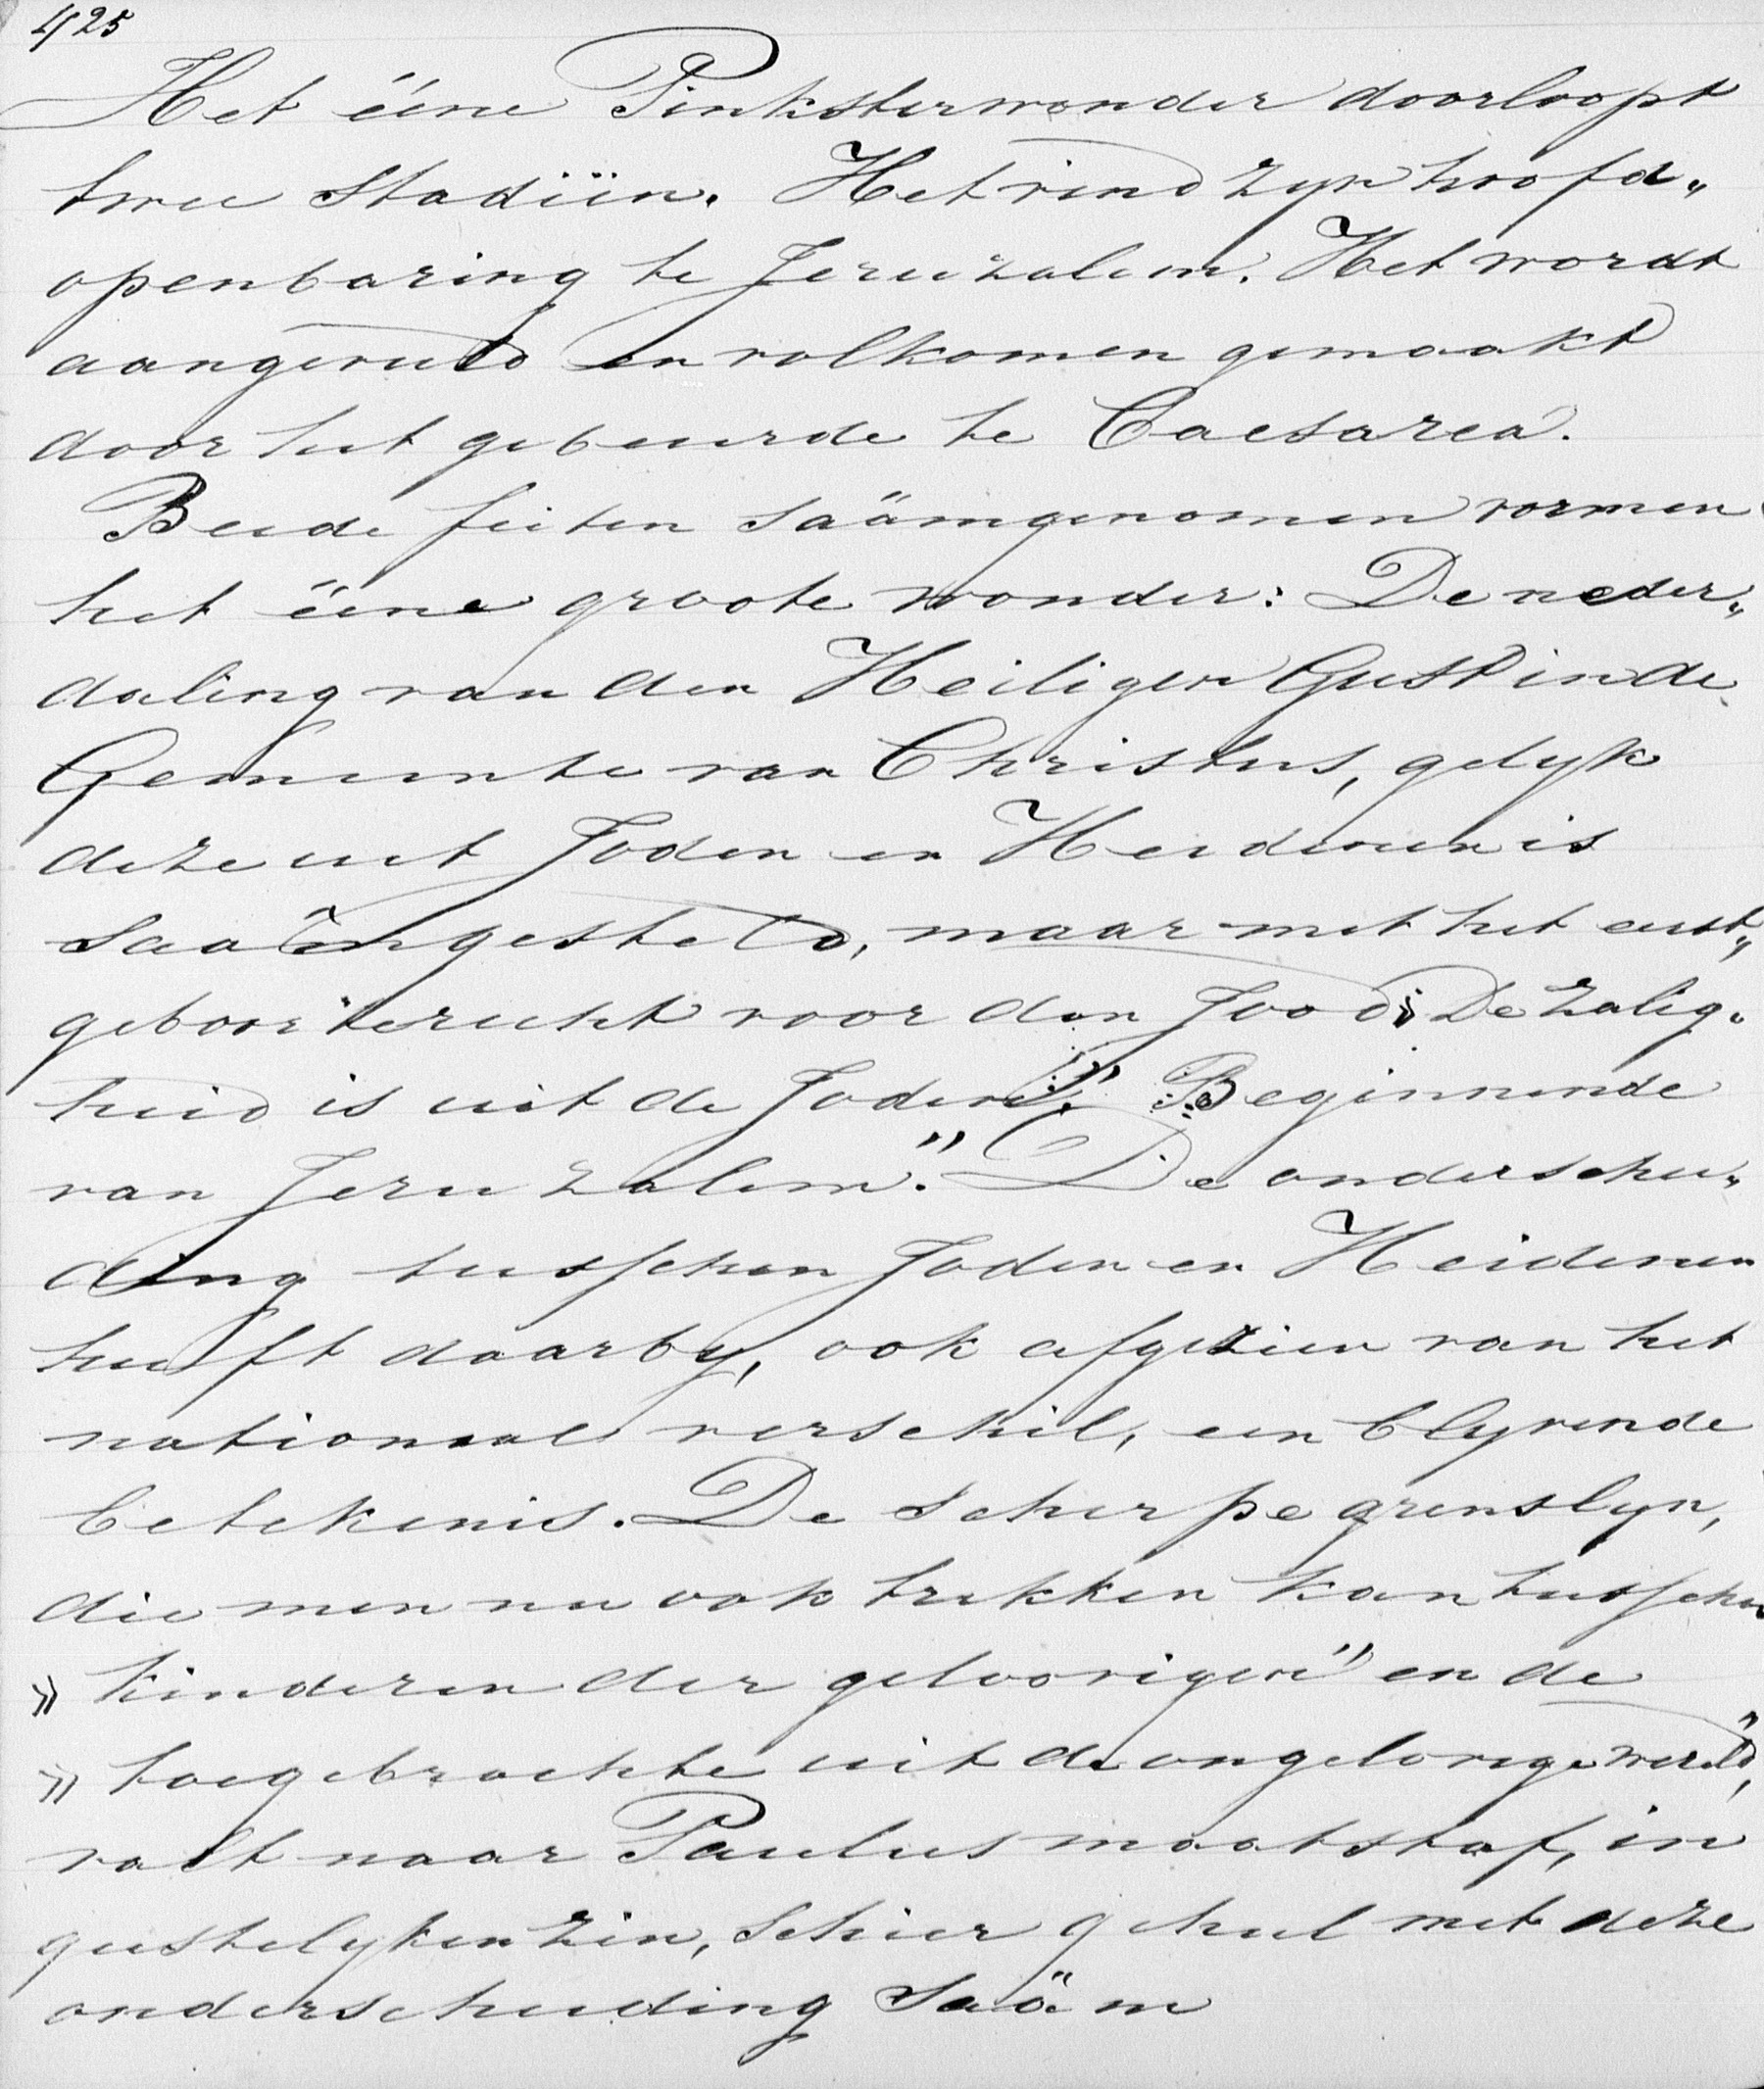 425
Het ééne Pinksterwonder doorloopt
twee Stadiën. Het vind zyn hoofd„
openbaring te Jeruzalem. Het wordt
aangevuld en volkomen gemaakt
door het gebeurde te Caesarea.
Beide feiten saämgenomen vormen
het ééne groote wonder: De neder„
daling van den Heiligen Geest in de
Gemeente van Christus, gelyk
deze uit Joden en Heidenen is
saämgesteld, maar met het eerst„
geboorterecht voor den Jood: De zalig„
heid is uit de Joden". Beginnende
van Jeruzalem." De onderschei„
ding tusschen Joden en Heidenen
heeft daarby, ook afgezien van het
nationaal verschil, een blyvende
betekenis. De scherpe grenslyn,
die men nu ook trekken kan tusschen
» kinderen der geloovigen" en de
» toegebrachte uit de ongelovige wereld",
valt naar Paulus maatstaf, in
geestelyken zin, schier geheel met deze
onderscheiding saäm